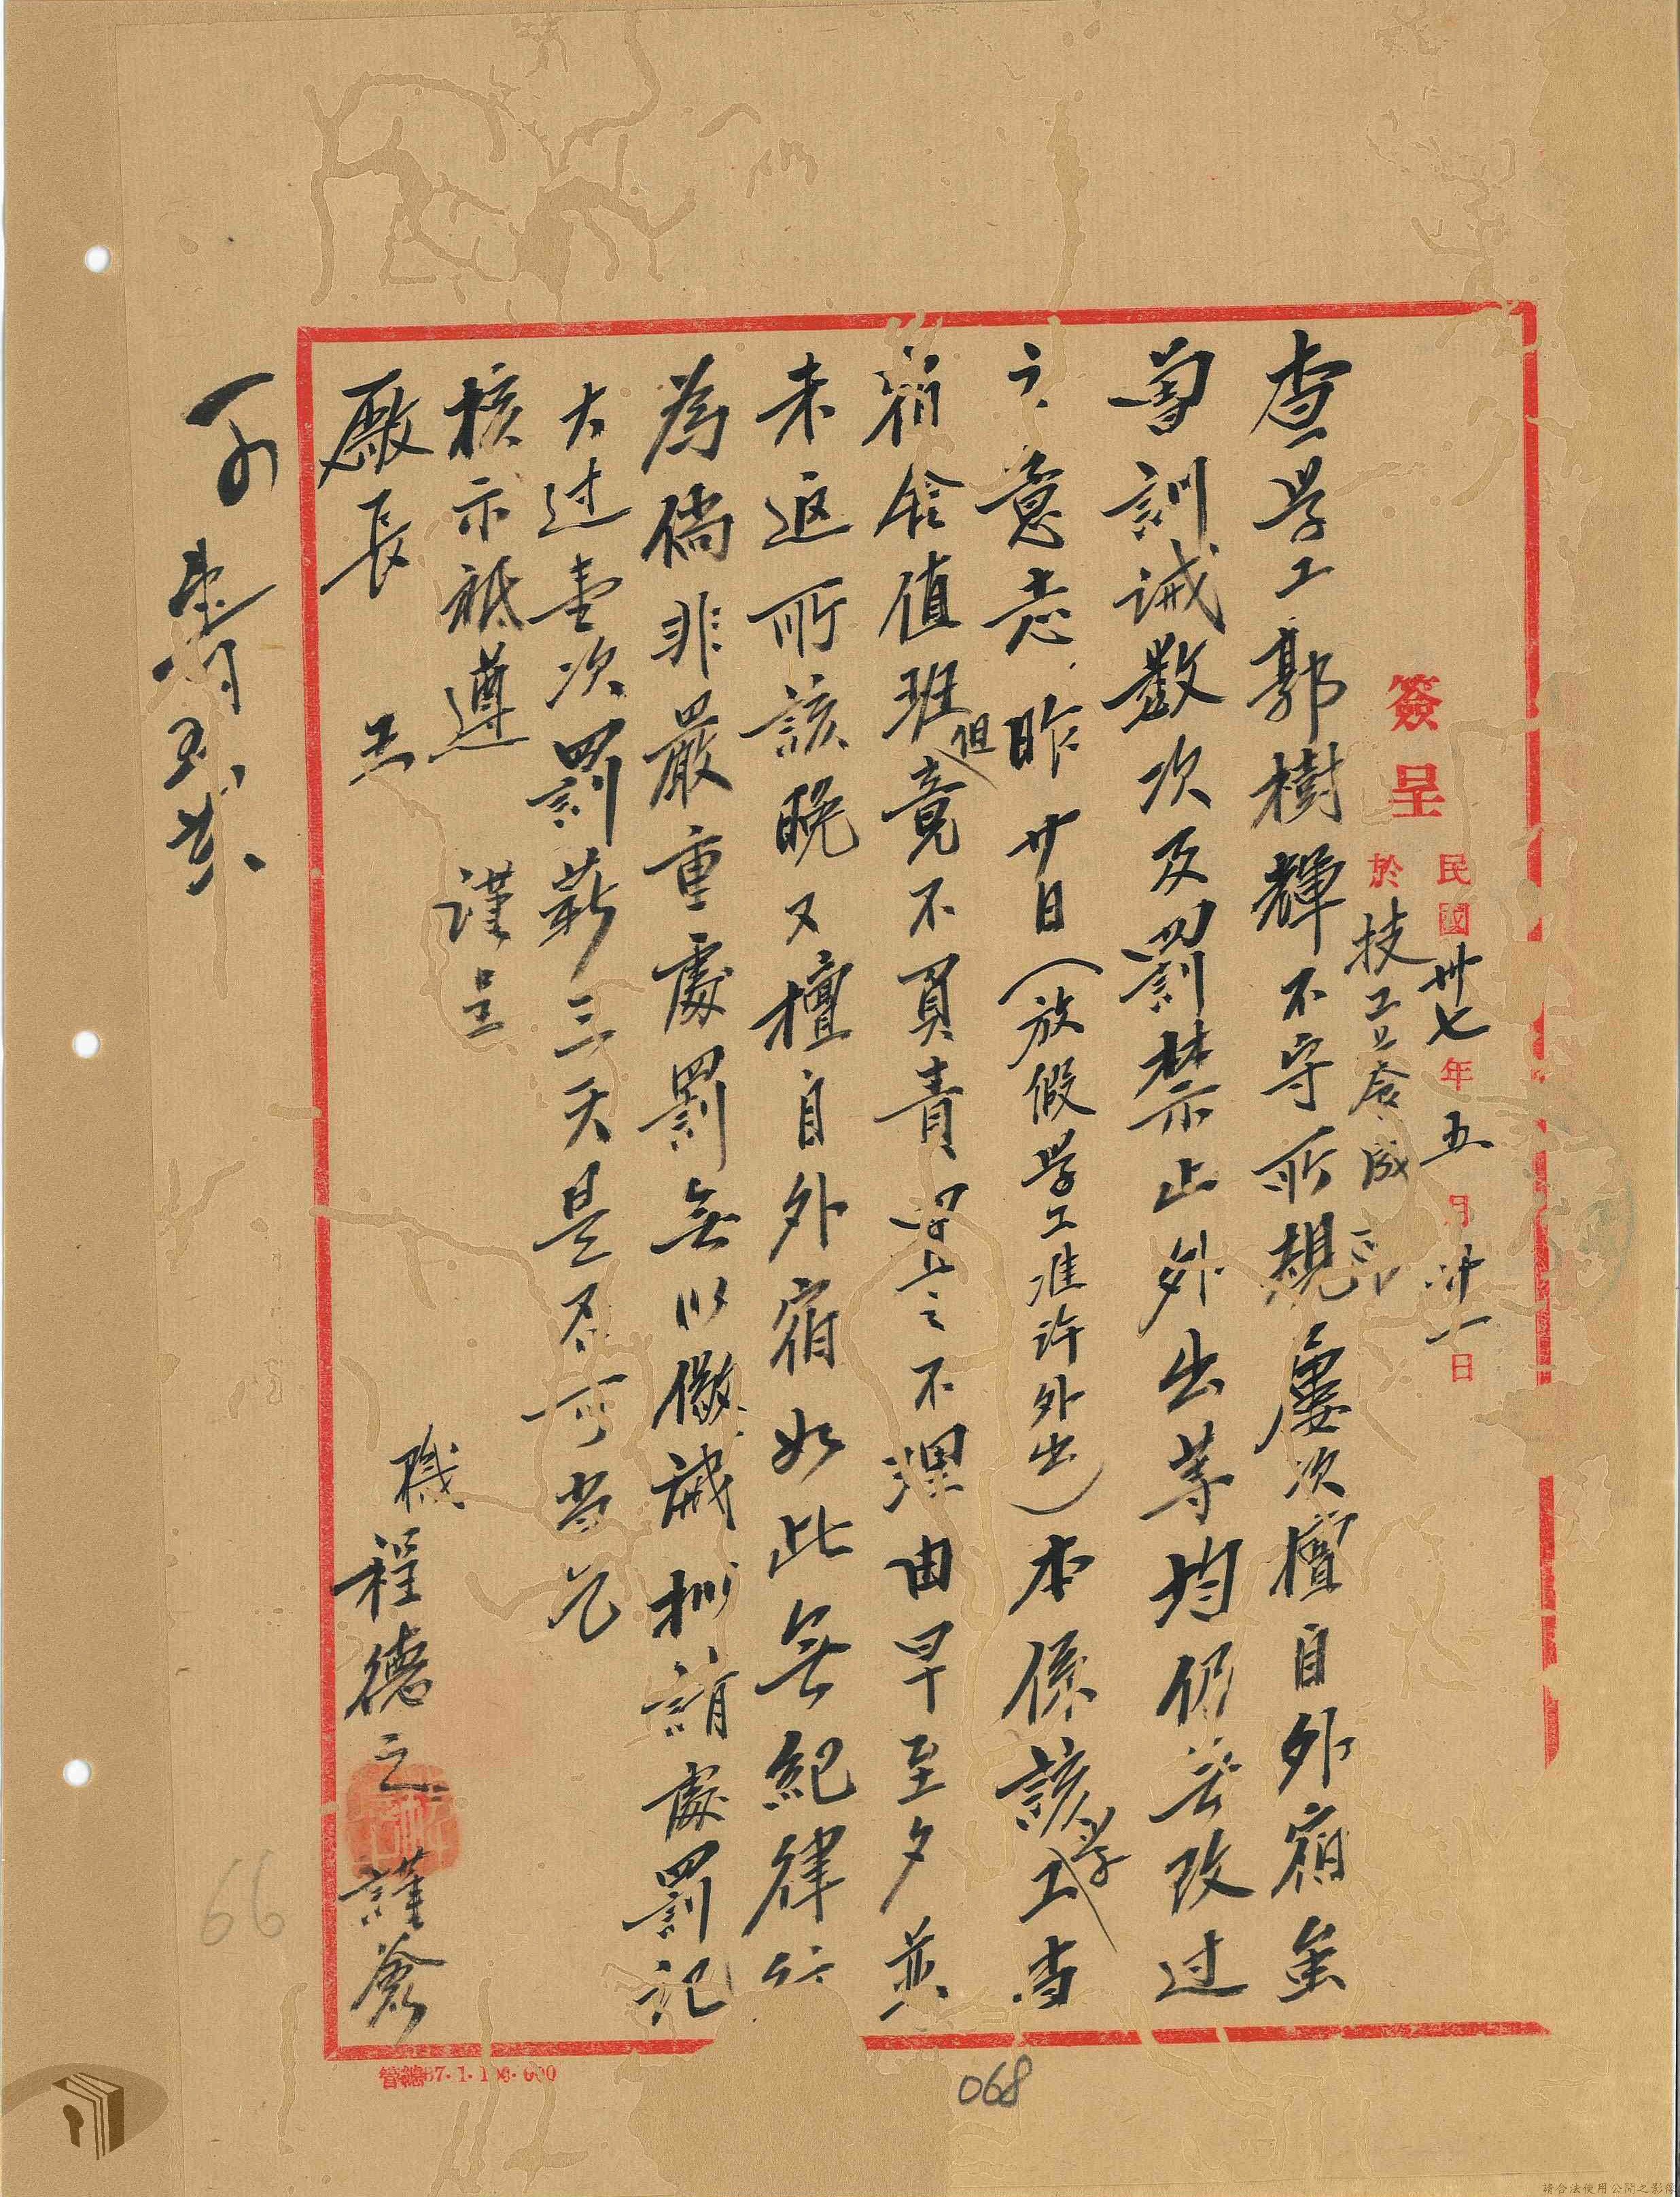 簽呈 民國卅七年五月廿一日
於技工養成所
查學工郭樹輝不守所規屢次擅自外宿虽
曾訓诫数次及罰禁止外出等均仍無改过
之意志昨廿日(放假學工准許外出)本係該學工當
宿舍值班但竟不負責置之不理由早至夕並
未返所該晚又擅自外宿如此無紀律行
為倘非嚴重處罰無以儆誡拟請處罰記
大过壹次罰薪三天是否可當乞
核示祗遵 謹呈
廠長 王
職程德之謹簽
可
五
068
66
管總37·1·100·000
請合法使用公開之影像